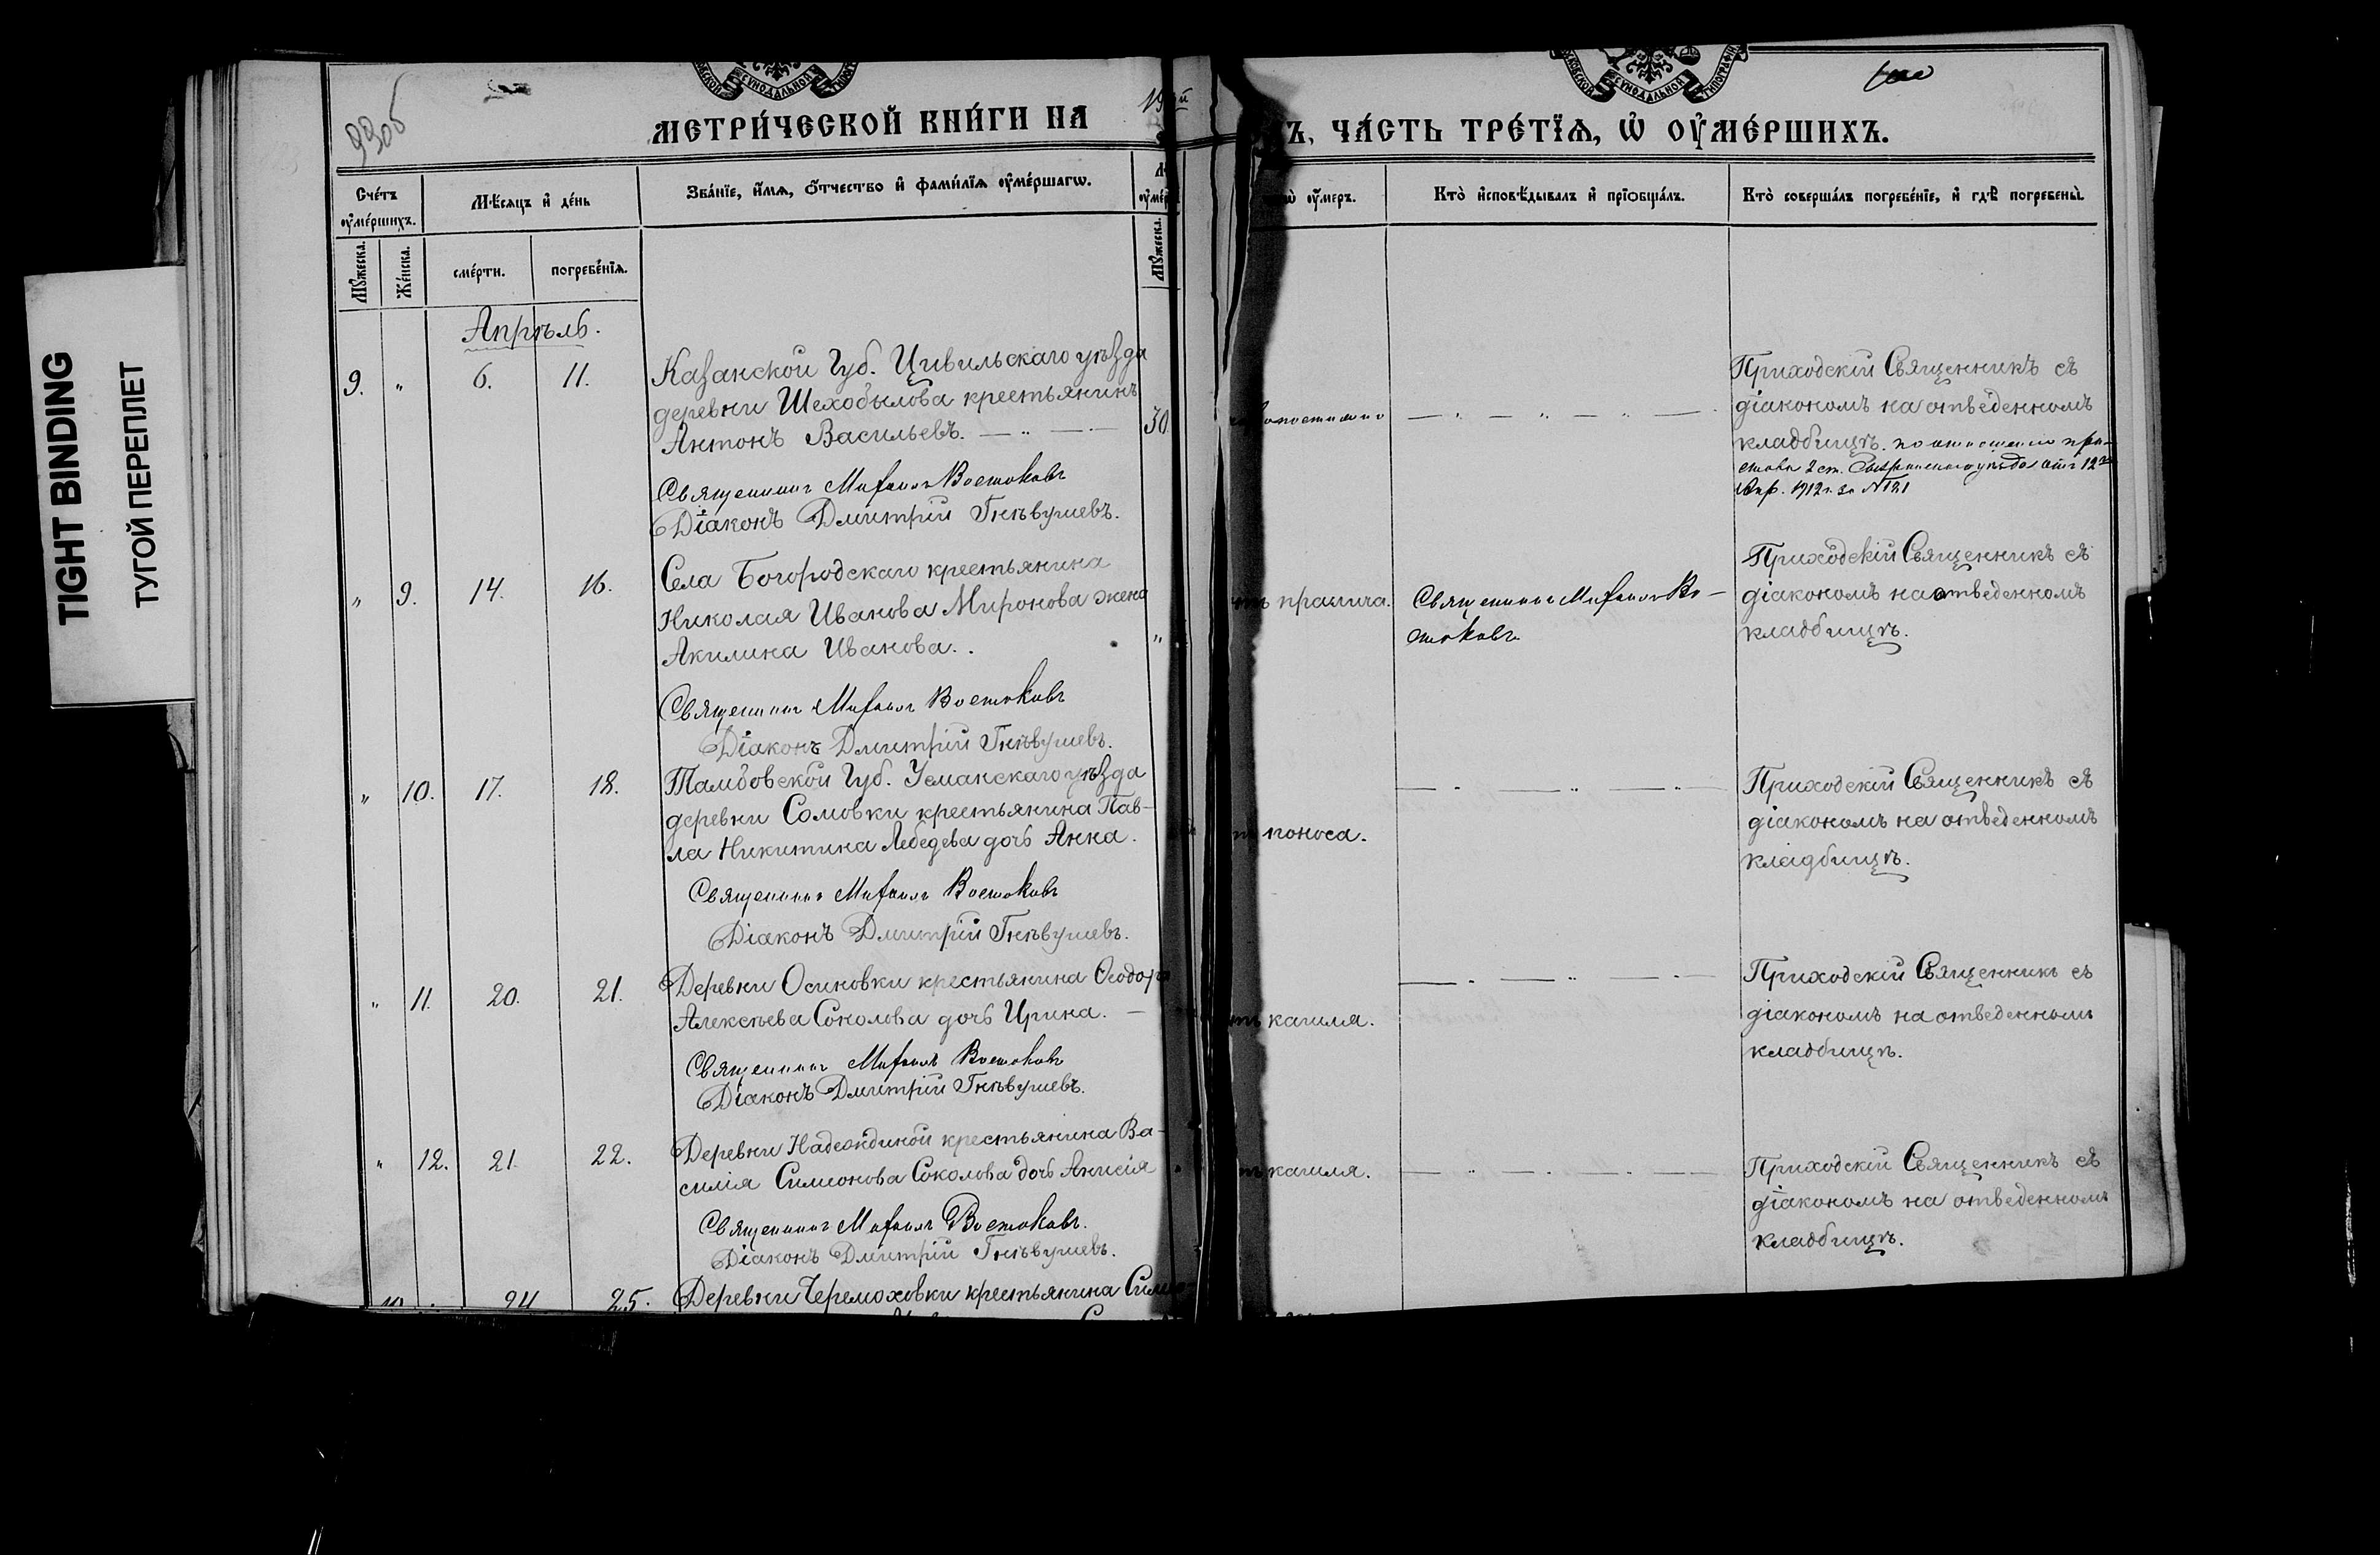 TIGHT BINDING
ТУГОЙ ПЕРЕПЛЕТ
93об
МЕТРИ́ЧЕСКОЙ КНИ́ГИ НА
Ъ, ЧА́СТЬ ТРЕ́ТЇѦ, Ѡ҆ ОУ҆МЕ́РШИХЪ.
Сче́тъ оу҆ме́ршихъ.
Мѣ́сяцъ и҆ де́нь
Зва́нїе, и҆́мѧ, ѻ҆́тчество и҆ фами́лїѧ оу҆ме́ршагѡ.
оу҆́меръ.
Кто̀ и҆сповѣ́дывалъ и҆ прїѡбща́лъ.
Кто̀ соверша́лъ погребе́нїе, и҆ гдѣ̀ погребены̀.
Мꙋ́жеска.
Же́нска.
сме́рти.
погребе́нїѧ.
Мꙋ́жеска.
Апрѣль.
9. " 6. 11.
Казанской Губ. Цивильскаго уѣзда
деревни Шехобылова крестьянинъ
Антонъ Васильевъ.
30
Священникъ Михаилъ Востоковъ
Діаконъ Дмитрій Гнѣвушевъ.
Приходскій Священникъ съ
діакономъ на отведенномъ
кладбищѣ. по отношенію при-
става 2 ст. уѣзда отъ 12го
Апр. 1912 г. за №121
" 9. 14. 16.
Села Богородскаго крестьянина
Николая Иванова Миронова жена
Акилина Иванова.
Священникъ Михаилъ Востоковъ
Діаконъ Дмитрій Гнѣвушевъ.
Священникъ Михаилъ Во-
стоковъ
Приходскій Священникъ съ
діакономъ на отведенномъ
кладбищѣ.
" 10. 17. 18.
Тамбовской Губ. Усманскаго уѣзда
деревни Сомовки крестьянина Пав-
ла Никитина Лебедева дочь Анна.
поноса.
Священникъ Михаилъ Востоковъ
Діаконъ Дмитрій Гнѣвушевъ.
Приходскій Священникъ съ
діакономъ на отведенномъ
кладбищѣ.
" 11. 20. 21.
Деревни Осиновки крестьянина Ѳеодора
Алексѣева Соколова дочь Ирина.
кашля.
Священникъ Михаилъ Востоковъ
Діаконъ Дмитрій Гнѣвушевъ.
Приходскій Священникъ съ
діакономъ на отведенномъ
кладбищѣ.
" 12. 21. 22.
Деревни Надеждиной крестьянина Ва-
силія Симеонова Соколова дочь Анисія
кашля.
Священникъ Михаилъ Востоковъ.
Діаконъ Дмитрій Гнѣвушевъ.
Приходскій Священникъ съ
діакономъ на отведенномъ
кладбищѣ.
24 25.
Деревни Черемоховки крестьянина